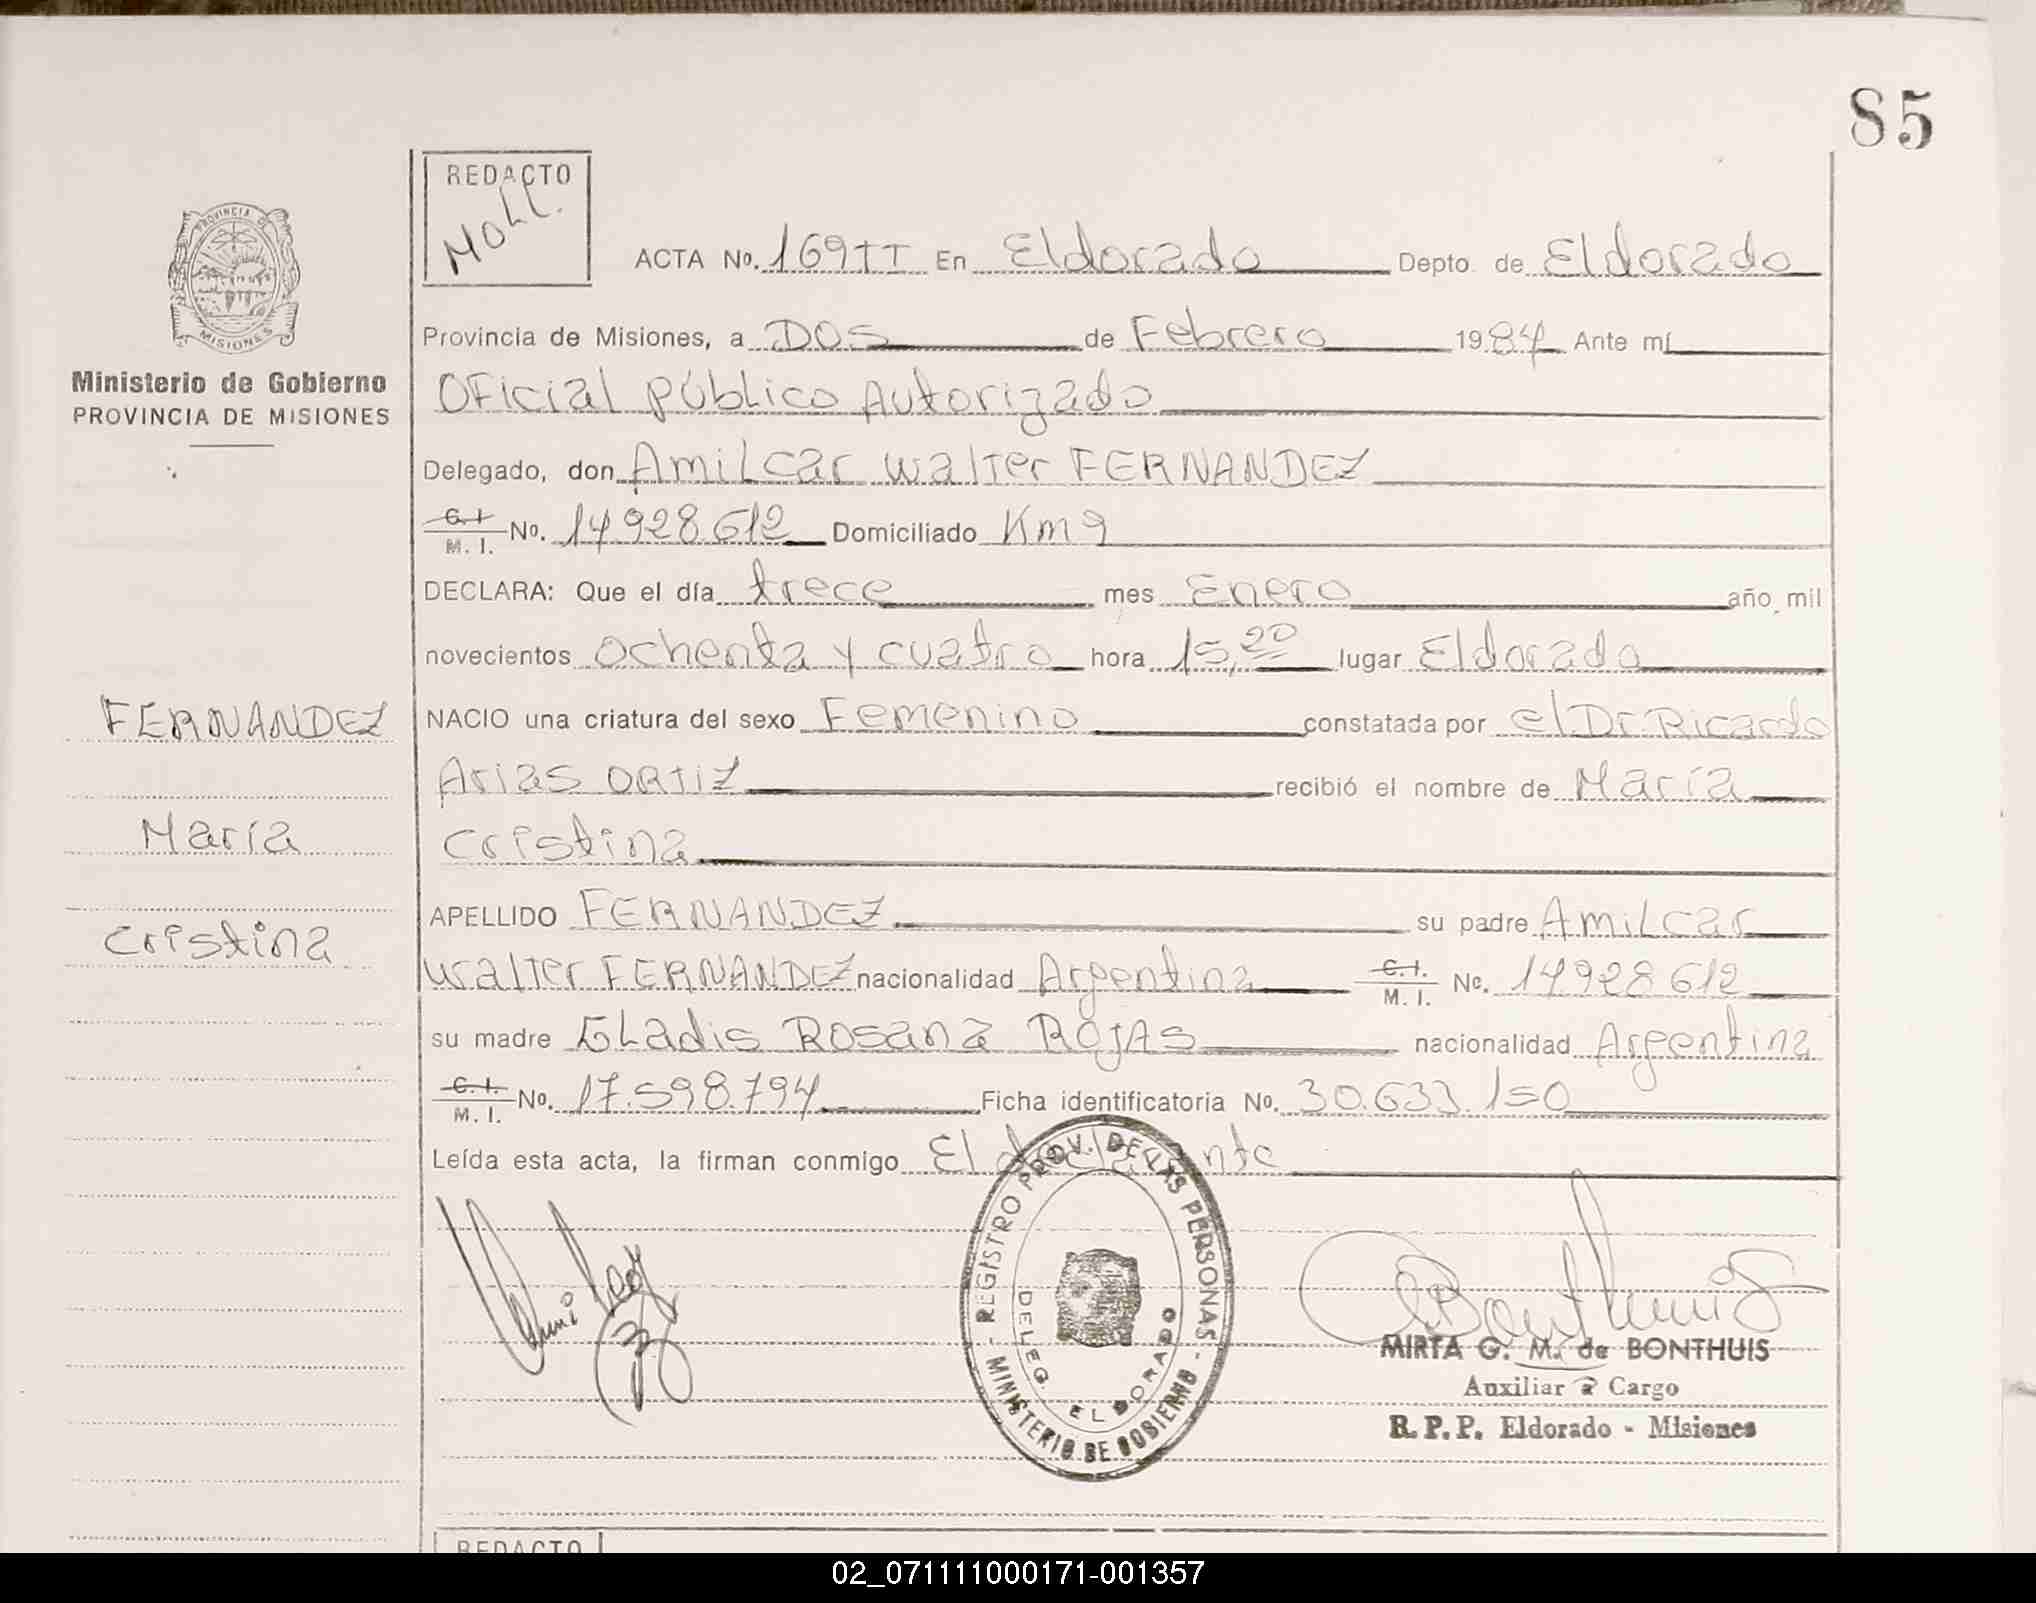 85
REDACTO
MOLL.
ACTA No. 169 TT En Eldorado Depto. de Eldorado
Provincia de Misiones, a DOS de Febrero 1984 Ante mí
Oficial Público Autorizado
Delegado, don Amilcar Walter FERNANDEZ
C.I. M. I. No. 14928612 Domiciliado Km 9
DECLARA: Que el día trece mes Enero año mil
novecientos Ochenta y cuatro hora 15,20 lugar Eldorado
NACIO una criatura del sexo Femenino constatada por el Dr. Ricardo
Arias ORTIZ recibió el nombre de María
Cristina
APELLIDO FERNANDEZ su padre Amilcar
Walter FERNANDEZ nacionalidad Argentina C.I. M. I. No. 14928612
su madre Gladis Rosana ROJAS nacionalidad Argentina
C.I. M. I. No. 17.598.794 Ficha identificatoria No. 30.633.150
Leída esta acta, la firman conmigo El declarante
PROVINCIA DE
MISIONES
Ministerio de Gobierno
PROVINCIA DE MISIONES
FERNANDEZ
María
Cristina
REGISTRO PROV. DE LAS PERSONAS
DELEG. ELDORADO
MINISTERIO DE GOBIERNO
MIRTA G. M. de BONTHUIS
Auxiliar a Cargo
R.P.P. Eldorado - Misiones
REDACTO
02_071111000171-001357